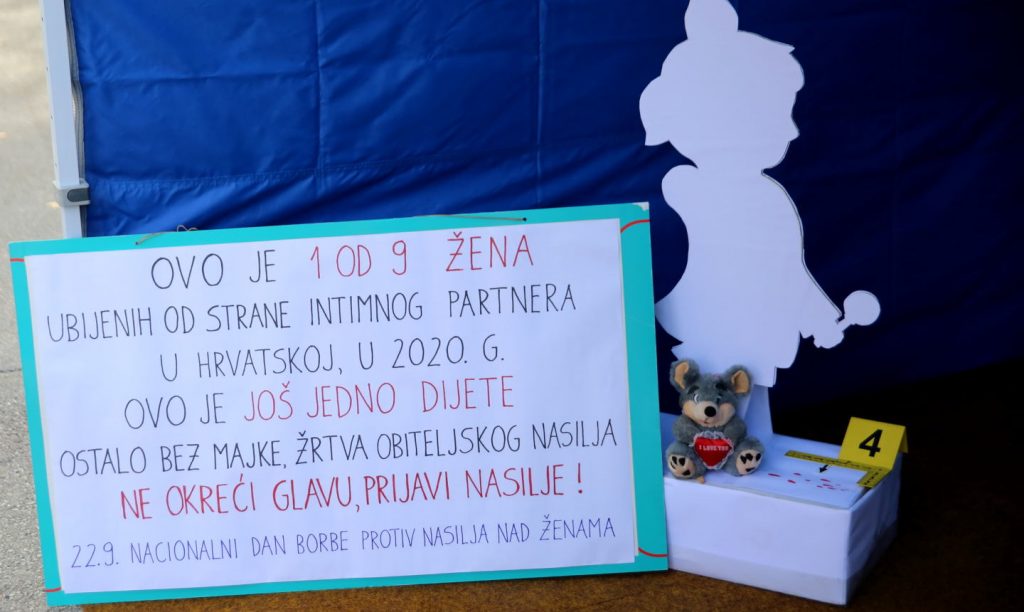 OVO JE 1 OD 9 ŽENA
UBIJENIH OD STRANE INTIMNOG PARTNERA
U HRVATSKOJ, U 2020. G.
OVO JE JOŠ JEDNO DIJETE
OSTALO BEZ MAJKE, ŽRTVA OBITELJSKOG NASILJA
NE OKREĆI GLAVU, PRIJAVI NASILJE !
22.9. NACIONALNI DAN BORBE PROTIV NASILJA NAD ŽENAMA
I LOVE YOU
4